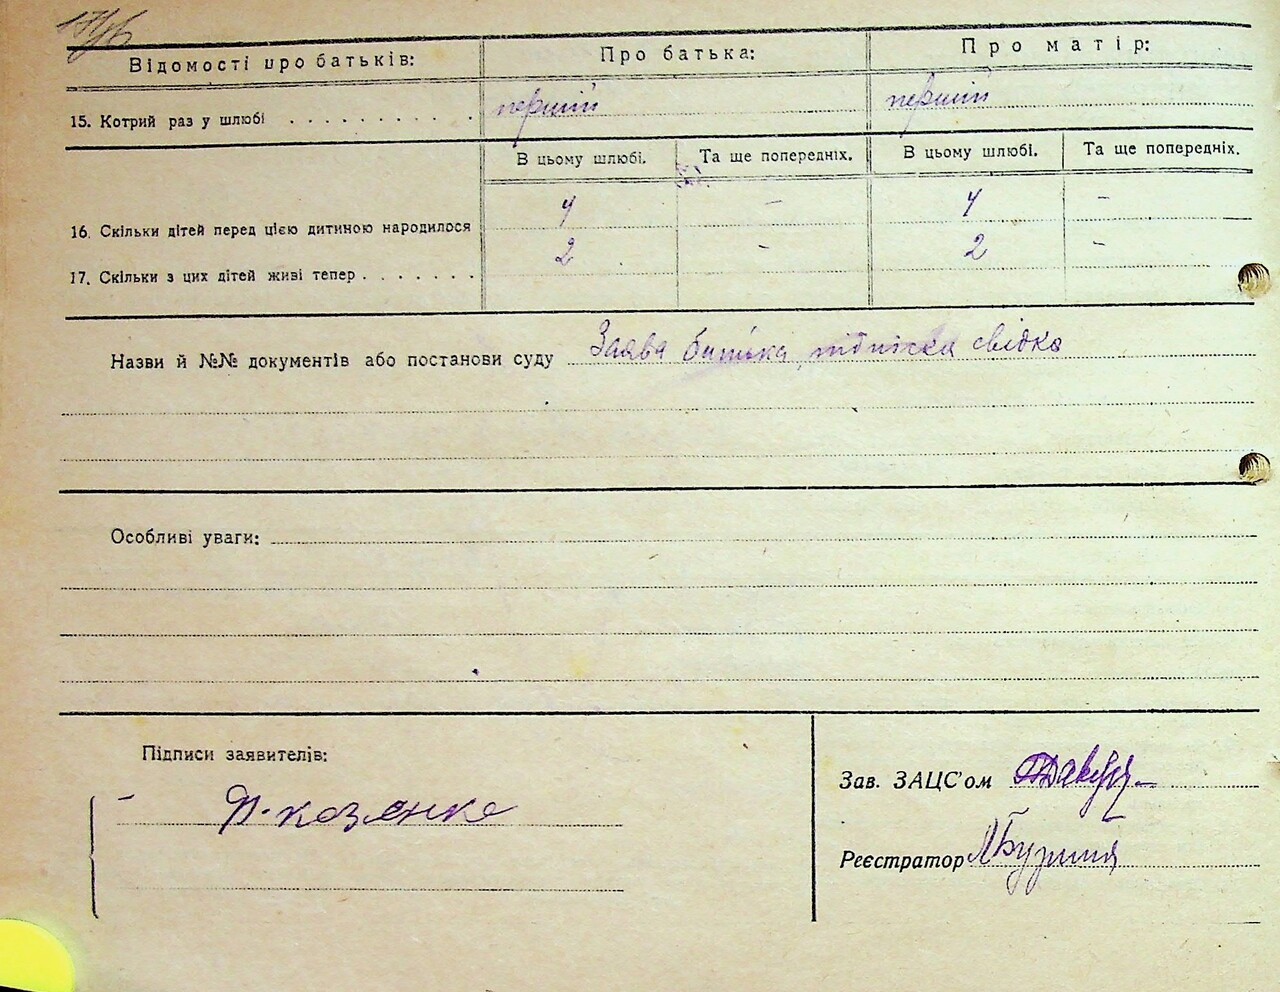 Відомості про батьків: Про батька: Про матір:
15. Котрий раз у шлюбі . . . . . . . . . . перший перший
В цьому шлюбі. Та ще попередніх. В цьому шлюбі. Та ще попередніх.
16. Скільки дітей перед цією дитиною народилося 4 – 4 –
17. Скільки з цих дітей живі тепер . . . . . . . 2 – 2 –
Назви й №№ документів або постанови суду Заява батька, підписка свідка
Особливі уваги:
Підписи заявителів:
Зав. ЗАЦС'ом
Реєстратор